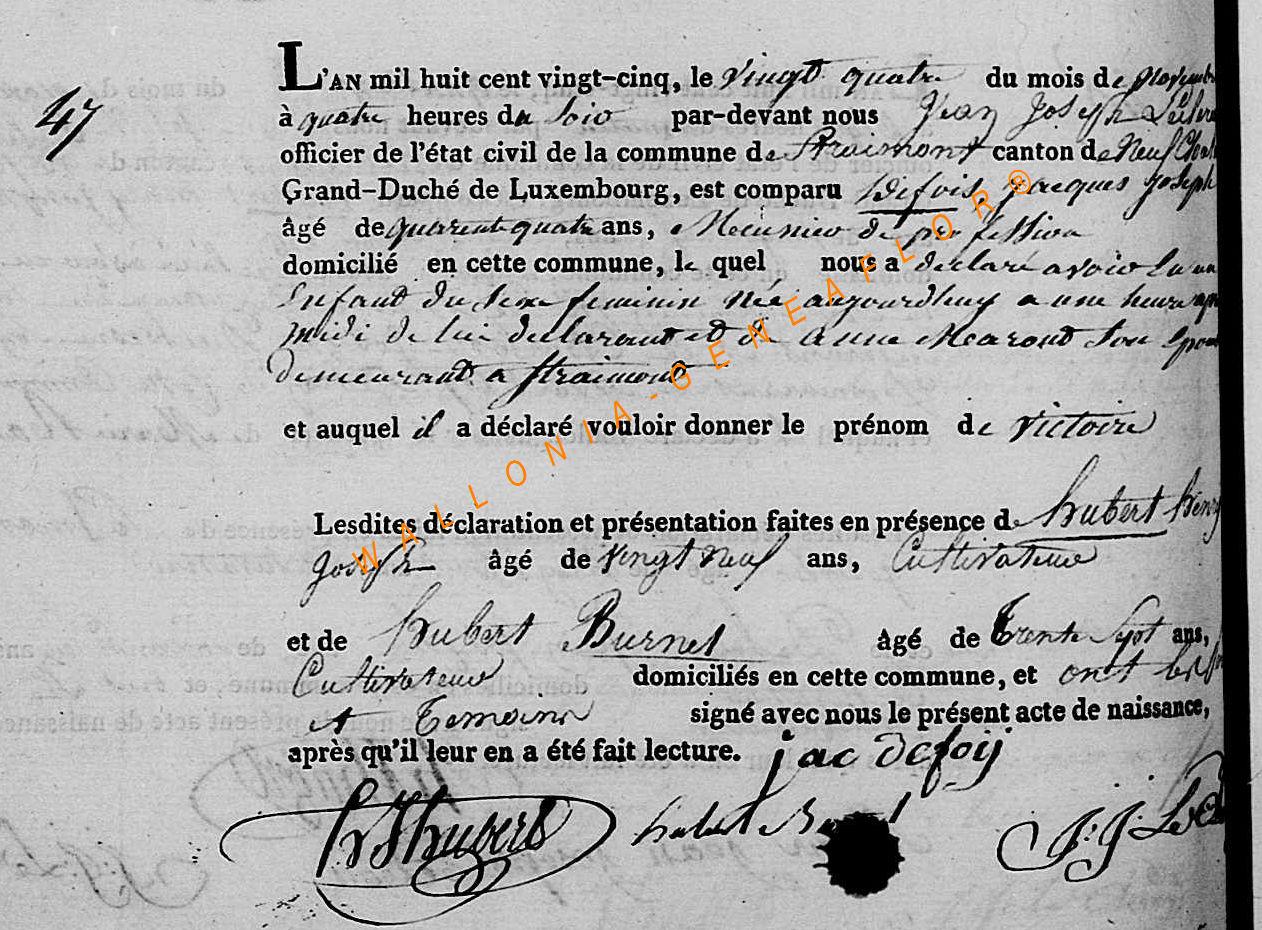 47
L'AN mil huit cent vingt-cinq, le vingt quatre du mois de novembre
à quatre heures du soir par-devant nous Jean Joseph
officier de l'état civil de la commune de Straimont canton de Neufchat
Grand-Duché de Luxembourg, est comparu Defois, jacques joseph
âgé de quarent quatre ans, Meunier de profession
domicilié en cette commune, le quel nous a declaré avoir eu un
Enfant du sexe feminin né aujourdhuy a une heure apr
midi de lui declarant et de Anne Maront son Epou
Demeurant a straimont
et auquel il a déclaré vouloir donner le prénom de Victoire
Lesdites déclaration et présentation faites en présence de hubert henry
joseph âgé de vingt neuf ans, Cultivateur
et de hubert Burnet âgé de Trente Sept ans,
Cultivateur domiciliés en cette commune, et ont
et Temoins signé avec nous le présent acte de naissance,
après qu'il leur en a été fait lecture. jac defoij
hJhubert hubert J. J.
WALLONIA-GENEAFLOR®